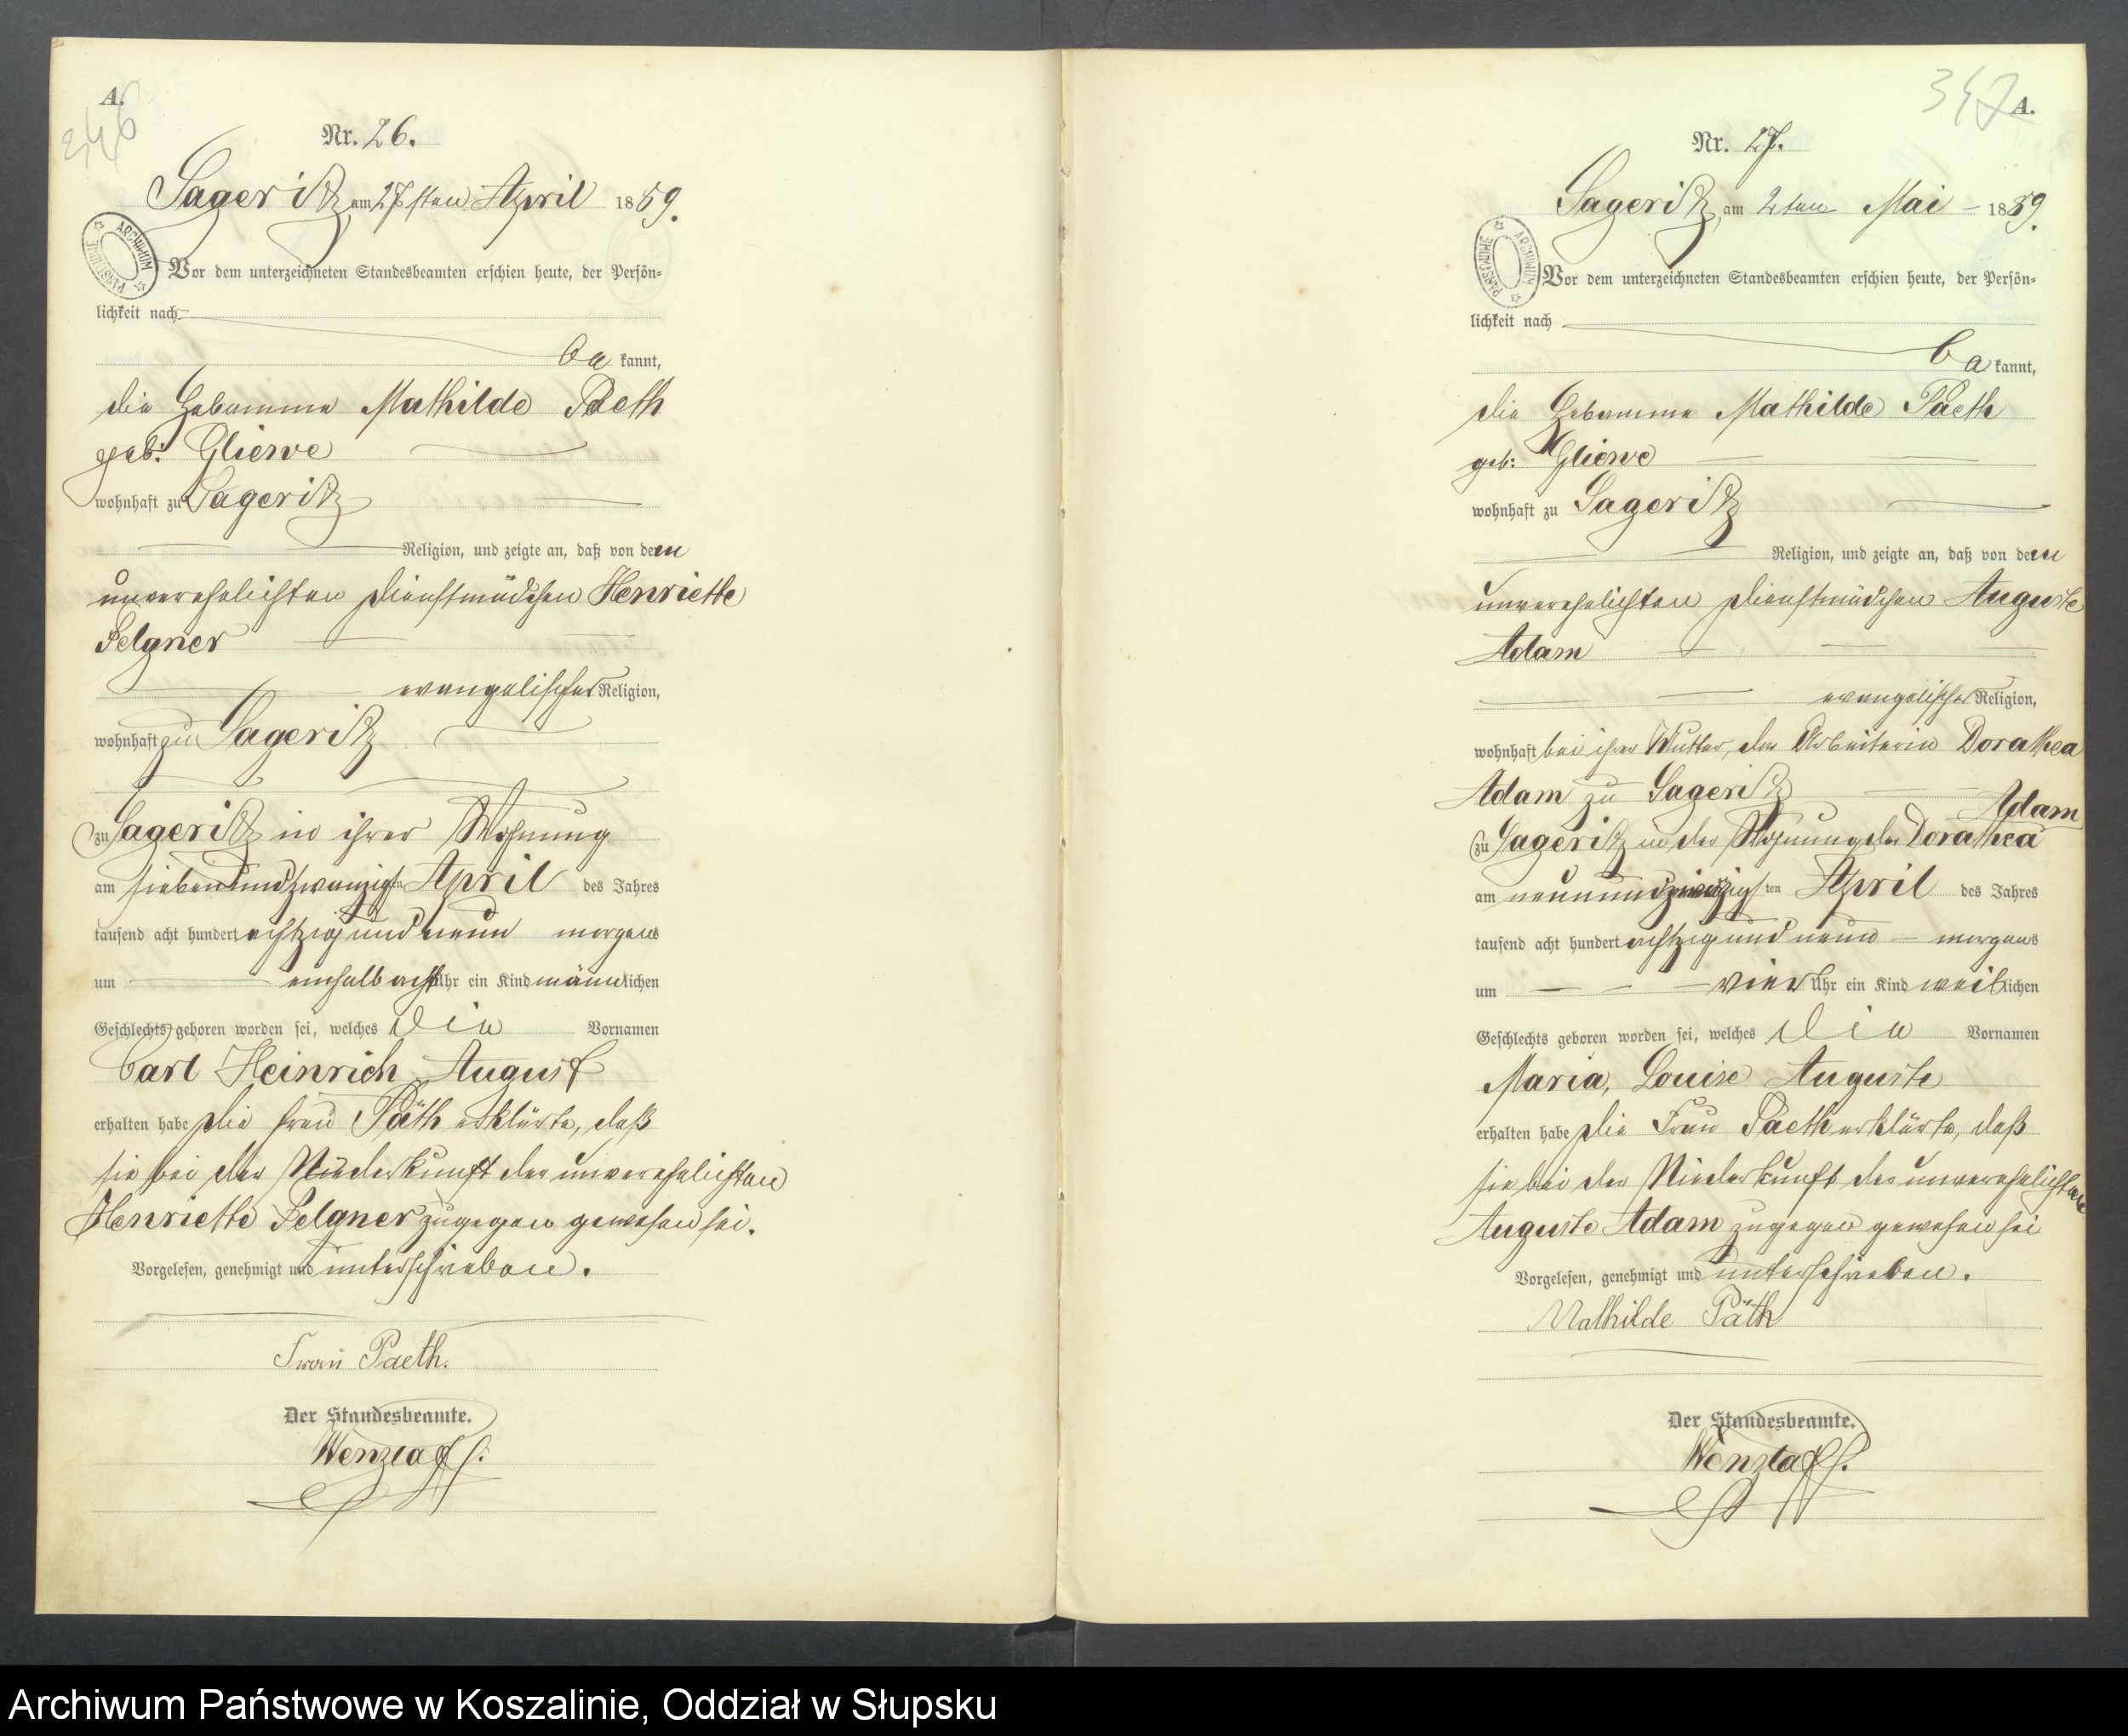 A.
346
Nr. 26.
Sageritz am 27sten April 1889.
ARCHIWUM PAŃSTWOWE
Vor dem unterzeichneten Standesbeamten erschien heute, der Persön-
lichkeit nach
be kannt,
die Hebamme Mathilde Paeth
geb. Gliewe
wohnhaft zu Sageritz
Religion, und zeigte an, daß von dem
unverehelichten Dienstmädchen Henriette
Selgner
evangelischer Religion,
wohnhaft zu Sageritz
zu Sageritz in ihrer Wohnung
am siebenundzwanzigsten April des Jahres
tausend acht hundert achtzig und neun morgens
um einhalb acht Uhr ein Kind männlichen
Geschlechts geboren worden sei, welches die Vornamen
Carl Heinrich August
erhalten habe Die Frau Päth erklärte, daß
sie bei der Niederkunft der unverehelichten
Henriette Selgner zugegen gewesen sei.
Vorgelesen, genehmigt und unterschrieben.
Frau Paeth.
Der Standesbeamte.
Wenzlaff.
347
A.
Nr. 27.
Sageritz, am 2ten Mai 1889.
ARCHIWUM PAŃSTWOWE
Vor dem unterzeichneten Standesbeamten erschien heute, der Persön-
lichkeit nach
be kannt,
die Hebamme Mathilde Paeth
geb: Gliewe
wohnhaft zu Sageritz
Religion, und zeigte an, daß von dem
unverehelichten Dienstmädchen Auguste
Adam
evangelischer Religion,
wohnhaft bei ihrer Mutter, der Arbeiterin Dorathea
Adam zu Sageritz
Adam
zu Sageritz in der Wohnung der Dorathea
am neunundzwanzigsten April des Jahres
tausend acht hundert achtzig und neun morgens
um vier Uhr ein Kind weiblichen
Geschlechts geboren worden sei, welches die Vornamen
Maria, Louise Auguste
erhalten habe Die Frau Paeth erklärte, daß
sie bei der Niederkunft der unverehelichten
Auguste Adam zugegen gewesen sei
Vorgelesen, genehmigt und unterschrieben.
Mathilde Päth
Der Standesbeamte.
Wenzlaff.
Archiwum Państwowe w Koszalinie, Oddział w Słupsku